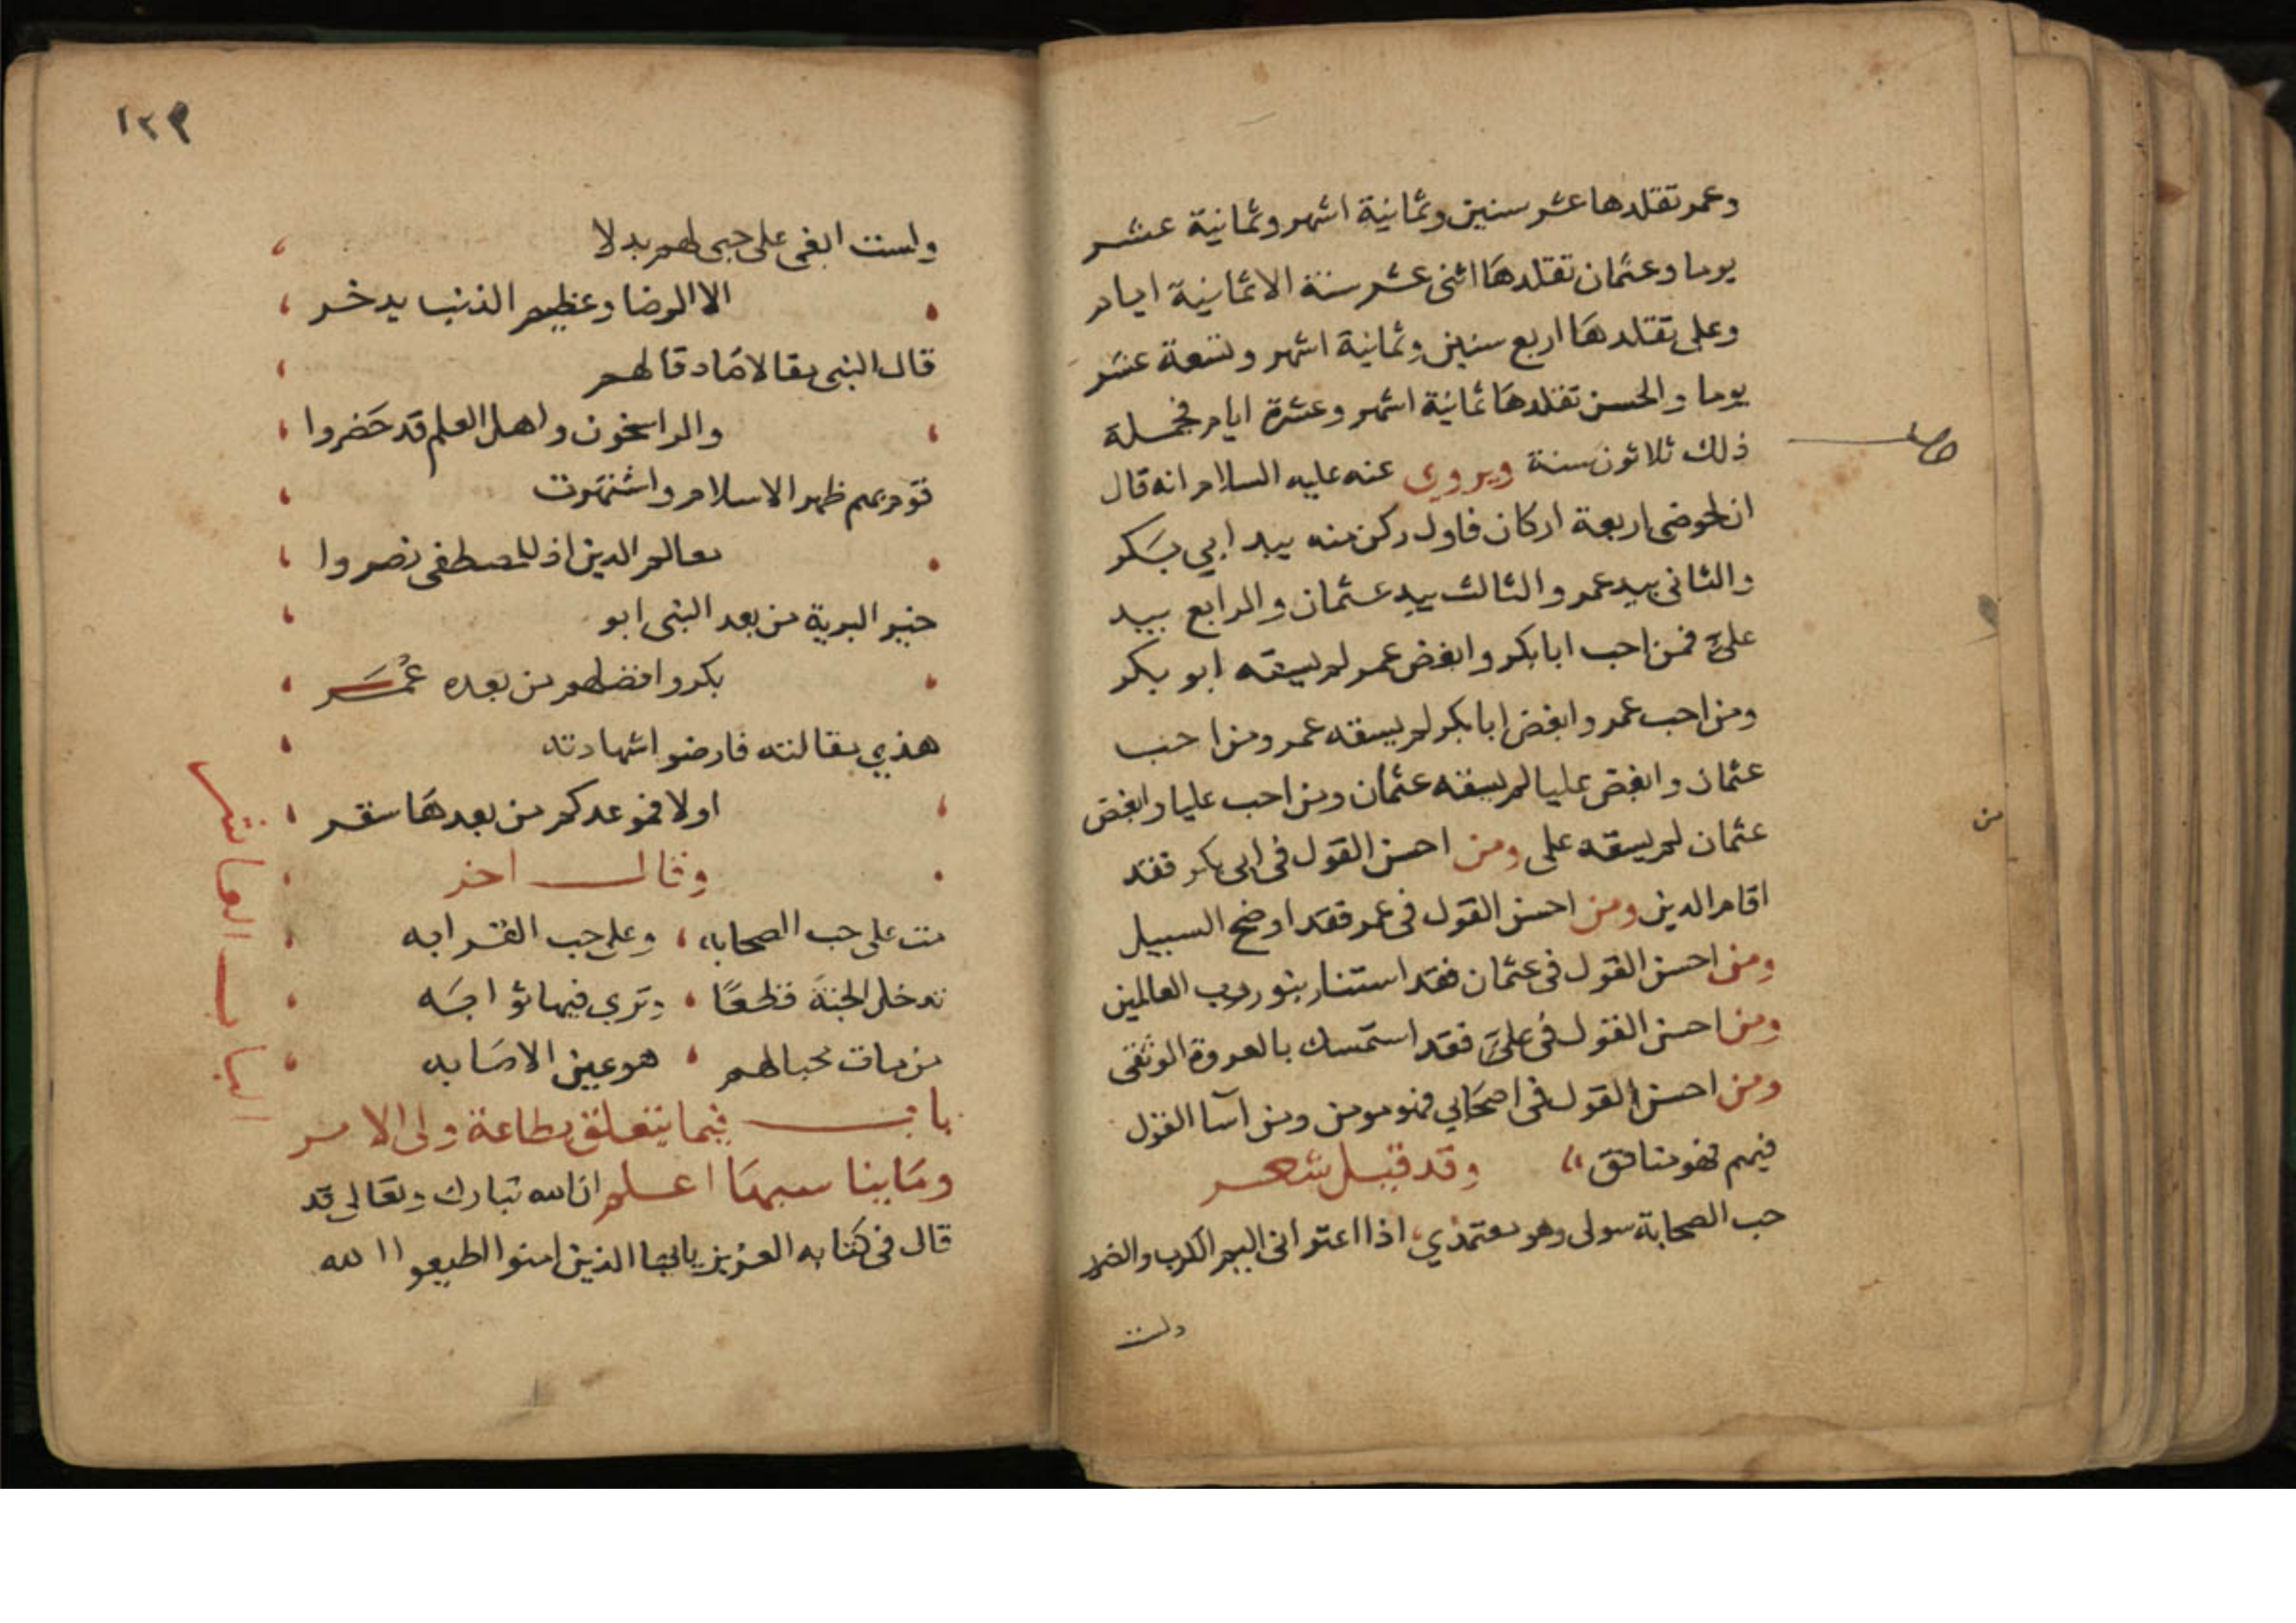 وعمر تقلدها عشر سنين وثمانية اشهر وثمانية عشر
يوما وعثمان تقلدها اثنى عشر سنة الا ثمانية ايام
وعلى تقلدها اربع سنين وثمانية اشهر وتسعة عشر
يوما والحسن تقلدها ثمانية اشهر وعشرة ايام فجملة
ذلك ثلاثون سنة ويروى عنه عليه السلام انه قال
ان لحوضى اربعة اركان فاول ركن منه بيد ابي بكر
والثانى بيد عمر والثالث بيد عثمان والرابع بيد
علىّ فمن احب ابا بكر وابغض عمر لم يسقه ابو بكر
ومن احب عمر وابغض ابا بكر لم يسقه عمر ومن احب
عثمان وابغض عليا لم يسقه عثمان ومن احب عليا وابغض
عثمان لم يسقه على ومن احسن القول فى ابى بكر فقد
اقام الدين ومن احسن القول فى عمر فقد اوضح السبيل
ومن احسن القول فى عثمان فقد استنار بنور رب العالمين
ومن احسن القول فى علىّ فقد استمسك بالعروة الوثقى
ومن احسن القول فى اصحابي فهو مومن ومن آسا القول
فيهم فهو منافق وقد قيل شعر
حب الصحابة سولى وهو معتمدي اذا اعترانى اليم الكرب والضرر
ولست
من
١٢٩
ولست ابغى على حبى لهم بدلا
الا الرضا وعظيم الذنب يدخر
قال النبى مقالا صادقا لهم
والراسخون واهل العلم قد حَضروا
قوم بهم ظهر الاسلام واشتهرت
معالم الدين اذ للمصطفى نصروا
خير البرية من بعد النبى ابو
بكر وافضلهم من بعده عُمَر
هذي مقالته فارضوا شهادته
اولا فموعدكم من بعدها سقر
وقال اخر
مت على حب الصحابه وعلى حب القرابه
تدخل الجنة قطعًا وتري فيها ثوابَه
من مات محبا لهم هو عين الاصابه
باب فيما يتعلق بطاعة ولى الامر
وما يناسبها اعلم ان الله تبارك وتعالى قد
قال فى كتابه العزيز يا ايها الذين امنوا اطيعوا الله
الباب العاشر